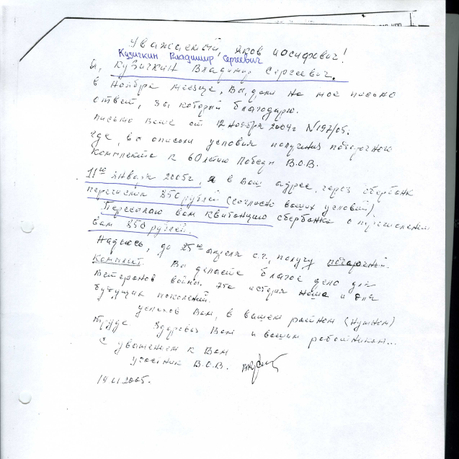 Уважаемый, Яков Иосифович!
Кузичкин Владимир Сергеевич
Я, Кузичкин Владимир Сергеевич,
в ноябре месяце, Вы, дали на мое письмо
ответ, за который благодарю.
Письмо Ваше от 12 ноября 2004г N197/05.
где, вы описали условия получения подарочного
комплекта к 60летию Победы В.О.В.
11го января 2005г, я в Ваш адрес, через сбербанк
перечислил 350 рублей (согласно ваших условий).
Пересылаю вам квитанцию сбербанка о перечислении
вам 350 рублей.
Надеюсь, до 25го апреля с.г. получу подарочный
комплект. Вы делаете благое дело для
Ветеранов войны. Это история наша и для
будущих поколений.
успехов Вам, в вашем (нужном)
труде. Здоровья Вам и вашим работникам...
С уважением к Вам
участник В.О.В.
2005г.